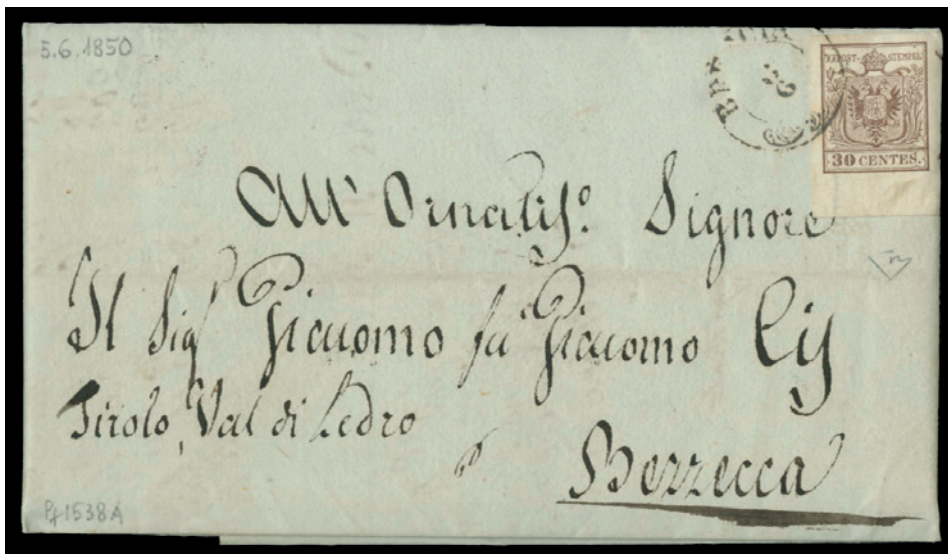 5.6.1850
KKPOST-STEMPEL
30 CENTES.
All' Ornatiss.º Signore
Il Sig.r Giacomo fu Giacomo Cis
Tirolo, Val di Ledro
Bezzecca